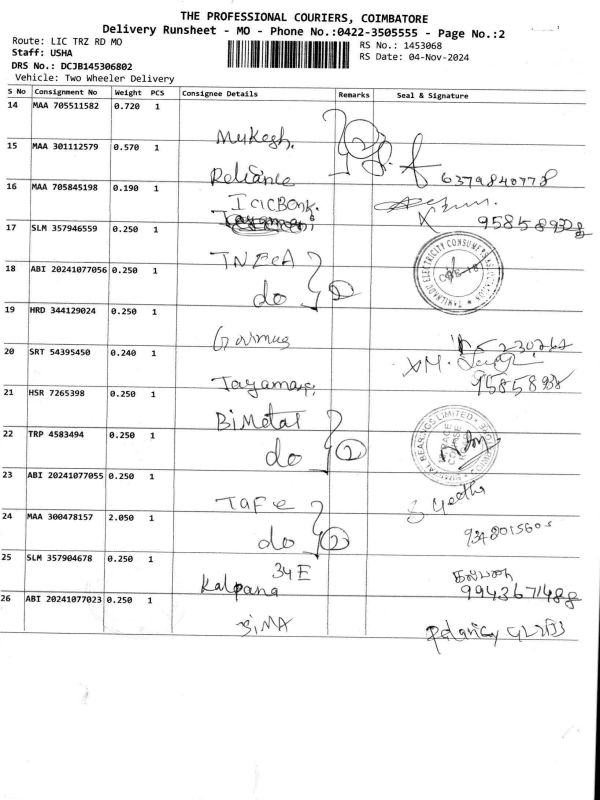 THE PROFESSIONAL COURIERS, COIMBATORE
Delivery Runsheet - MO - Phone No.:0422-3505555 - Page No.:2
Route: LIC TRZ RD MO
RS No.: 1453068
Staff: USHA
RS Date: 04-Nov-2024
DRS No.: DCJB145306802
Vehicle: Two Wheeler Delivery
S No Consignment No Weight PCS Consignee Details Remarks Seal & Signature
14 MAA 705511582 0.720 1
Mukesh.
15 MAA 301112579 0.570 1
Reliance 6379840778
16 MAA 705845198 0.190 1
ICICBank.
17 SLM 357946559 0.250 1
TNECA
18 ABI 20241077056 0.250 1
do 2
19 HRD 344129024 0.250 1
20 SRT 54395450 0.240 1
21 HSR 7265398 0.250 1
BiMetal
22 TRP 4583494 0.250 1
do 2
23 ABI 20241077055 0.250 1
TAFE
24 MAA 300478157 2.050 1
do 2
25 SLM 357904678 0.250 1
34E
Kalpana 9943671488
26 ABI 20241077023 0.250 1
SIMA